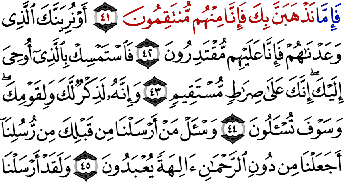 فَإِمَّا نَذْهَبَنَّ بِكَ فَإِنَّا مِنْهُم مُّنتَقِمُونَ ٤١ أَوْ نُرِيَنَّكَ ٱلَّذِى
وَعَدْنَـٰهُمْ فَإِنَّا عَلَيْهِم مُّقْتَدِرُونَ ٤٢ فَٱسْتَمْسِكْ بِٱلَّذِىٓ أُوحِىَ
إِلَيْكَ ۖ إِنَّكَ عَلَىٰ صِرَٰطٍ مُّسْتَقِيمٍ ٤٣ وَإِنَّهُۥ لَذِكْرٌ لَّكَ وَلِقَوْمِكَ ۖ
وَسَوْفَ تُسْـَٔلُونَ ٤٤ وَسْـَٔلْ مَنْ أَرْسَلْنَا مِن قَبْلِكَ مِن رُّسُلِنَآ
أَجَعَلْنَا مِن دُونِ ٱلرَّحْمَـٰنِ ءَالِهَةً يُعْبَدُونَ ٤٥ وَلَقَدْ أَرْسَلْنَا